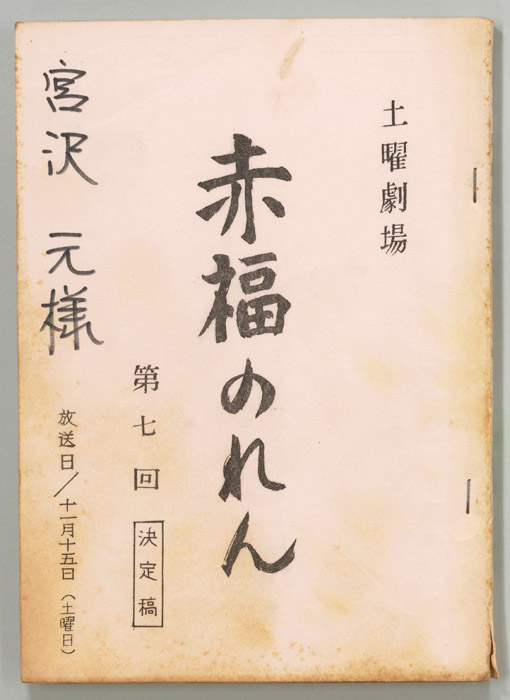 土曜劇場
赤福のれん
第七回
決定稿
放送日/十一月十五日(土曜日)
宮沢 元様